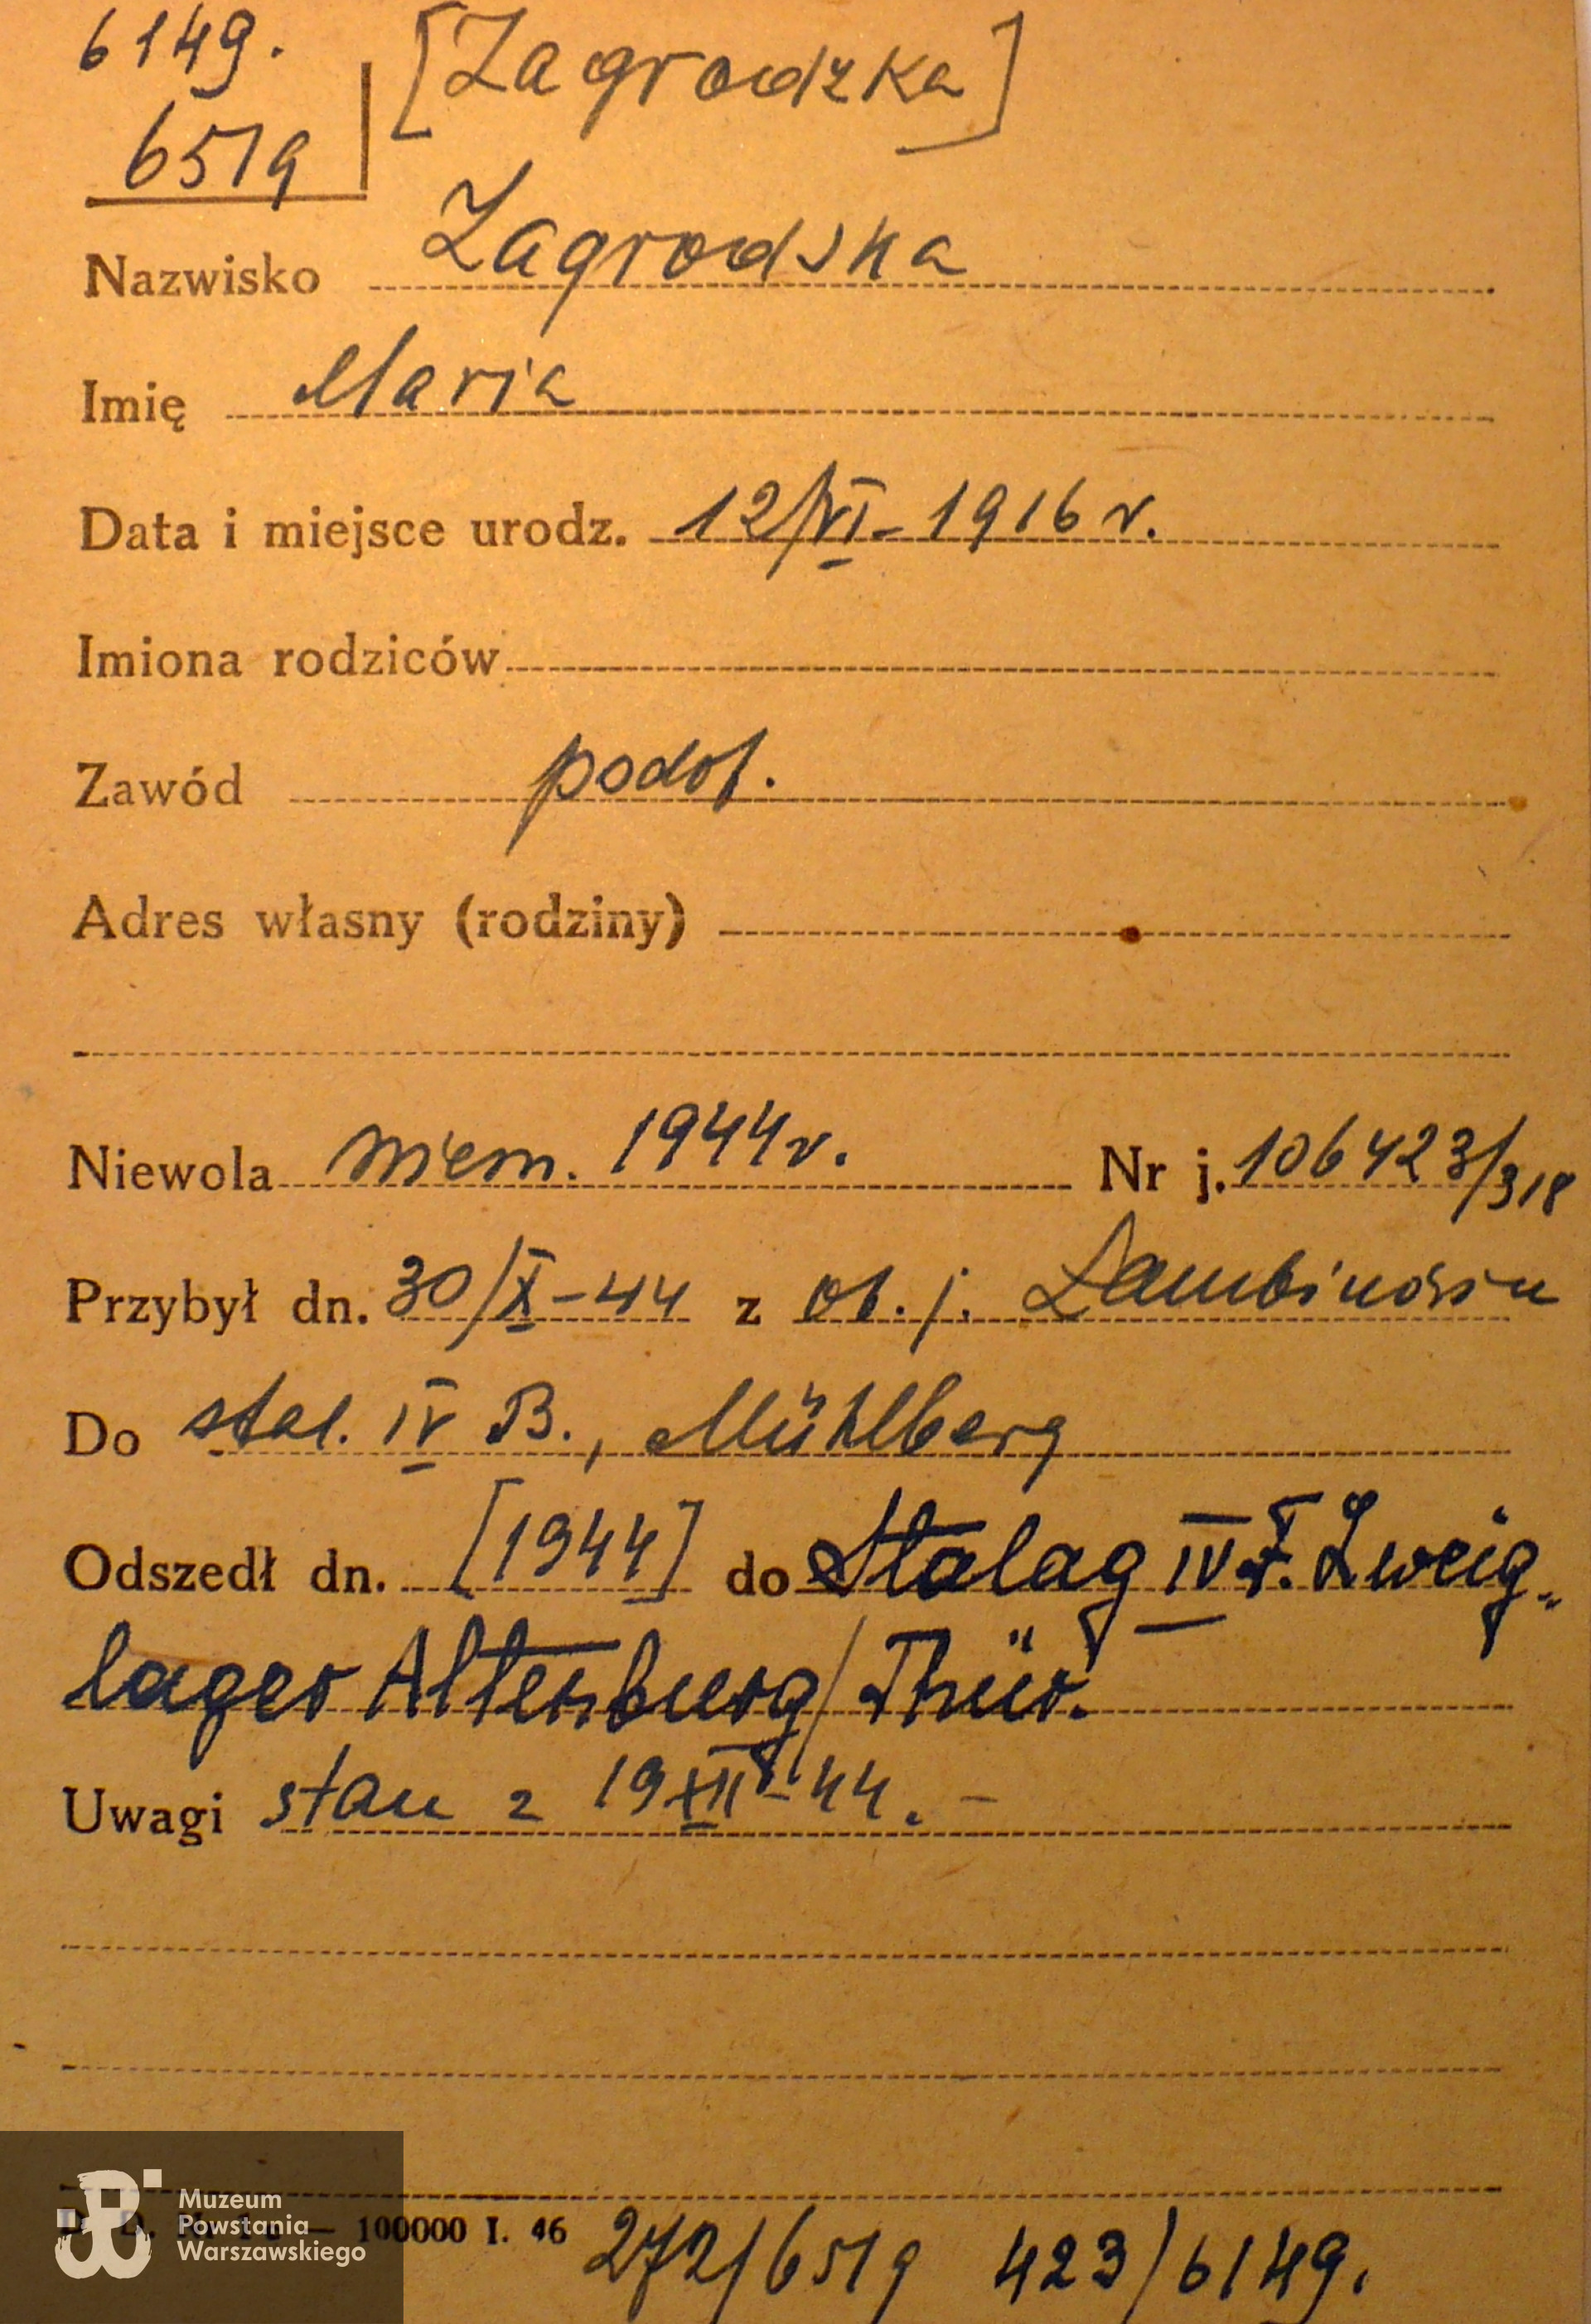 6149.
6519
[Zagrodzka]
Nazwisko Zagrodska
Imię Maria
Data i miejsce urodz. 12/VI-1916 r.
Imiona rodziców
Zawód podof.
Adres własny (rodziny)
Niewola niem. 1944 r. Nr j. 106423/318
Przybył dn. 30/X-44 z ob. j. Lambinowie
Do stal. IV B., Mühlberg
Odszedł dn. [1944] do Stalag IV F. Zweig„
lager Altenburg/Thür.
Uwagi stan z 19 XII-44. -
— 100000 I. 46
272/6519 423/6149.
Muzeum
Powstania
Warszawskiego